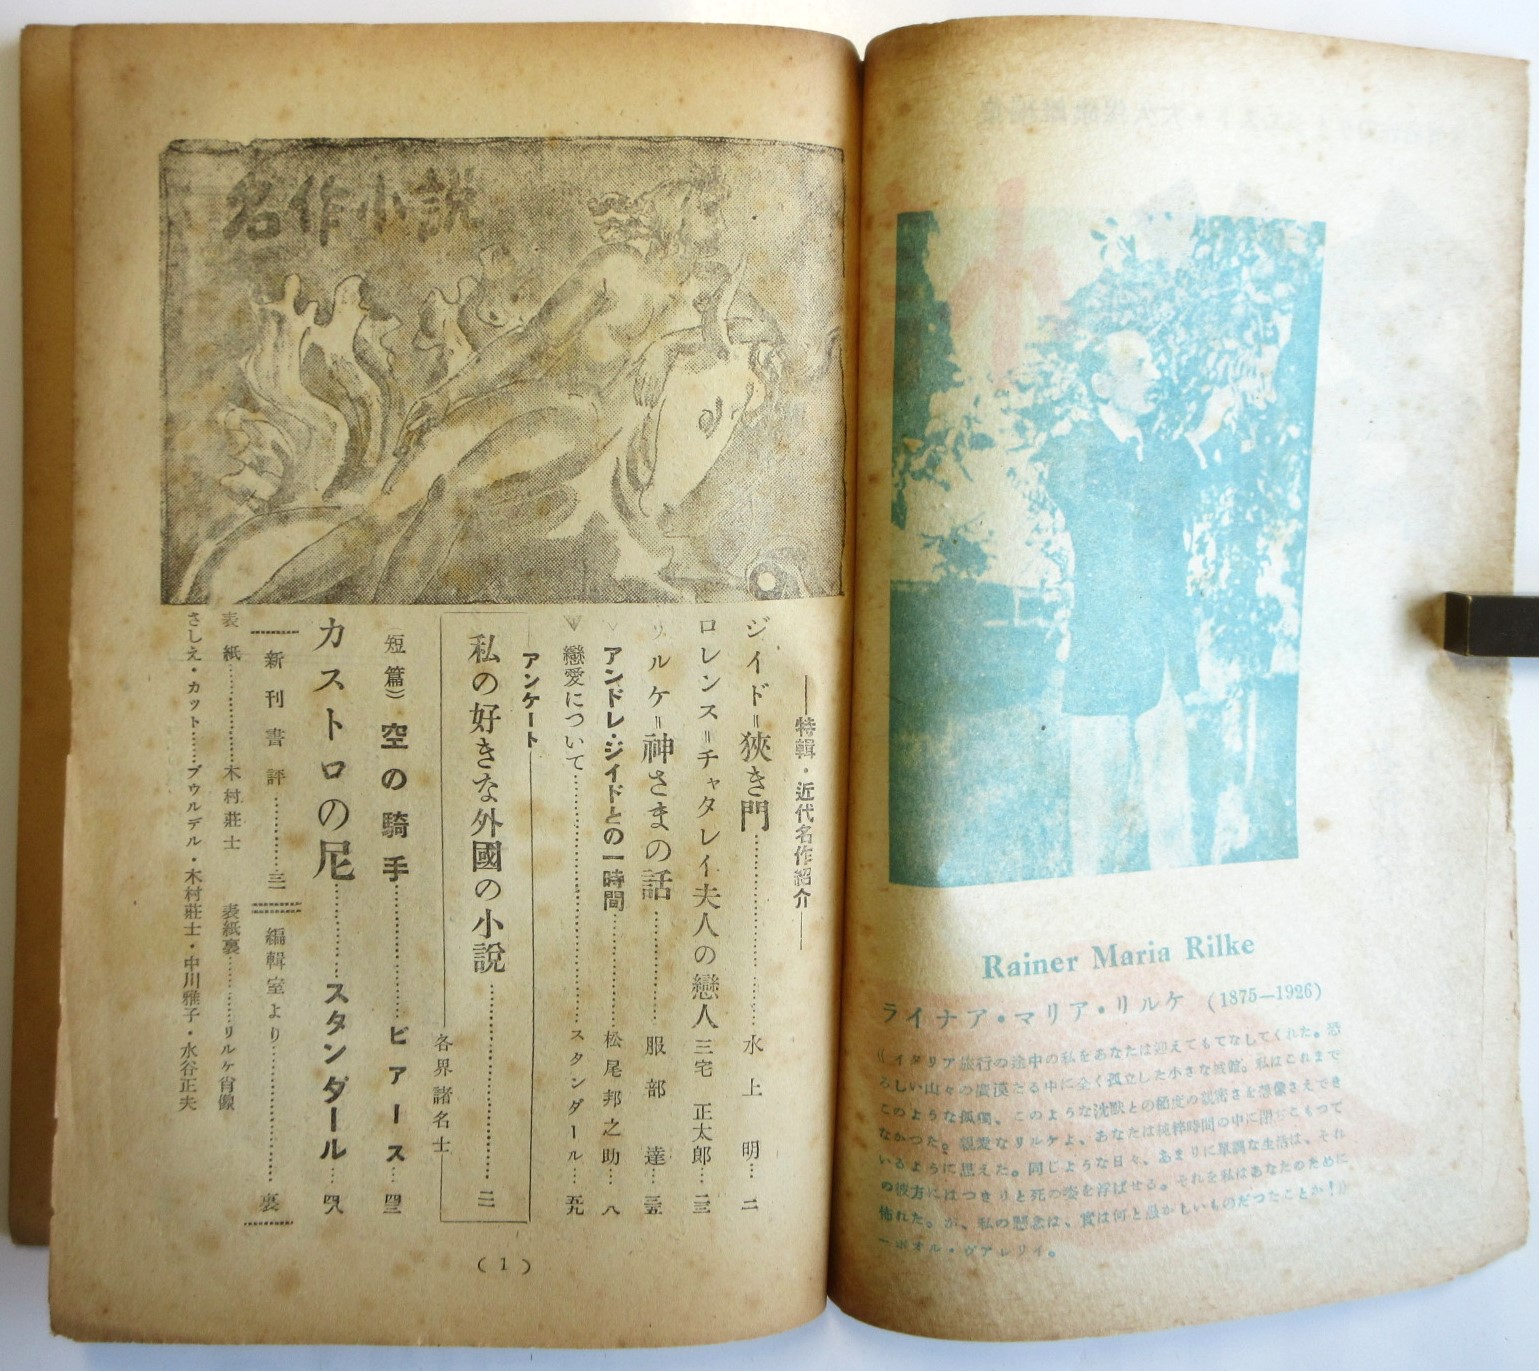 Rainer Maria Rilke
ライナア・マリア・リルケ (1875—1926)
《イタリア旅行の途中の私をあなたは迎えてもてなしてくれた。恐
ろしい山々の廣漠たる中に全く孤立した小さな城館。私はこれまで
このような孤獨、このような沈默との極度の親密さを想像さえでき
なかつた。親愛なリルケよ、あなたは純粹時間の中に閉じこもつて
いるように思えた。同じような日々、あまりに單調な生活は、それ
の彼方にはつきりと死の姿を浮ばせる。それを私はあなたのために
怖れた。が、私の懸念は、實は何と愚かしいものだつたことか!》
—ポオル・ヴアレリイ。
名作小説
—特輯・近代名作紹介—
ジイド＝狹き門……水上 明…二
ロレンス＝チャタレイ夫人の戀人 三宅 正太郎…二三
リルケ＝神さまの話……服部 達…三五
アンドレ・ジイドとの一時間……松尾邦之助…八
戀愛について……スタンダール…五九
アンケート
私の好きな外國の小説……二一
各界諸名士
(短篇) 空の騎手……ビアース…四三
カストロの尼……スタンダール…四八
新刊書評……三一
編輯室より……裏
表紙……木村莊士 表紙裏……リルケ肖像
さしえ・カット……ブウルデル・木村莊士・中川雅子・水谷正夫
(1)